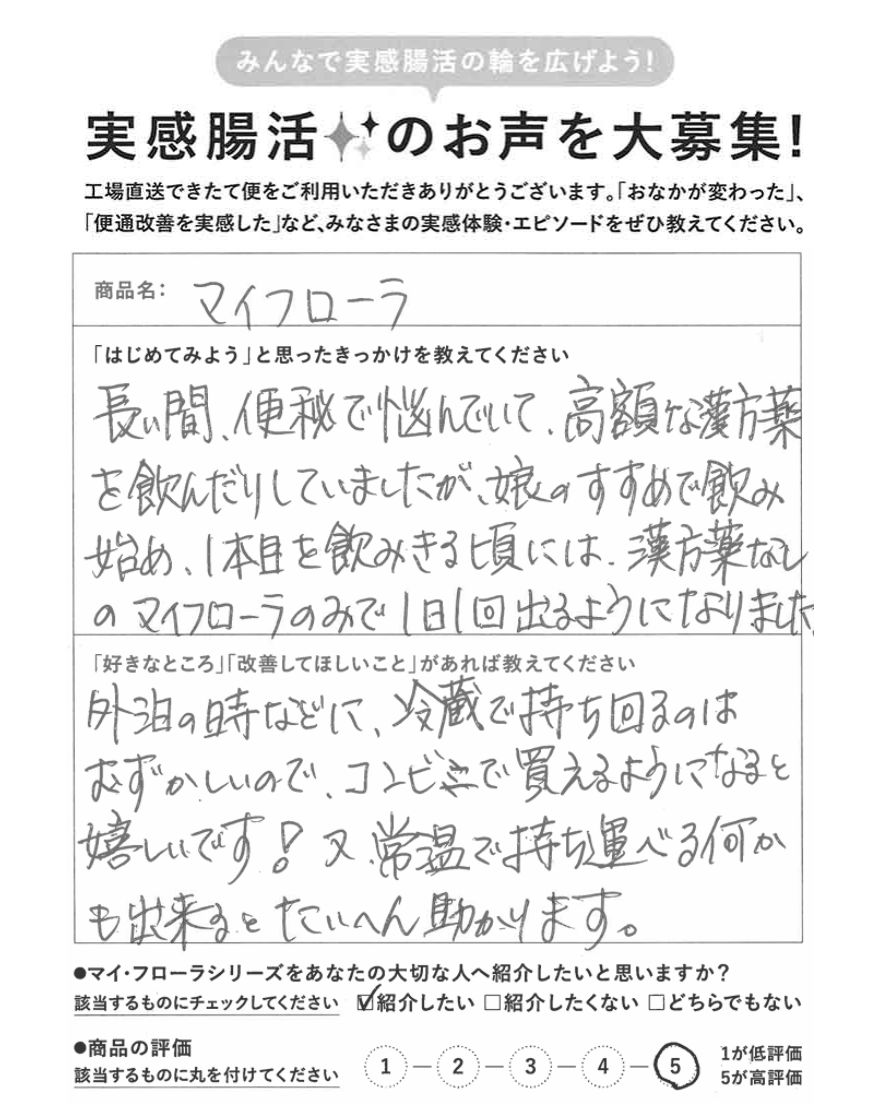 みんなで実感腸活の輪を広げよう!
実感腸活のお声を大募集!
工場直送できたて便をご利用いただきありがとうございます。「おなかが変わった」、
「便通改善を実感した」など、みなさまの実感体験・エピソードをぜひ教えてください。
商品名: マイフローラ
「はじめてみよう」と思ったきっかけを教えてください
長い間、便秘で悩んでいて、高額な漢方薬
を飲んだりしていましたが、娘のすすめで飲み
始め、1本目を飲みきる頃には、漢方薬なし
のマイフローラのみで1日1回出るようになりました。
「好きなところ」「改善してほしいこと」があれば教えてください
外泊の時などに、冷蔵で持ち回るのは
むずかしいので、コンビニで買えるようになると
嬉しいです! 又、常温で持ち運べる何か
も出来るとたいへん助かります。
●マイ・フローラシリーズをあなたの大切な人へ紹介したいと思いますか?
該当するものにチェックしてください ☑紹介したい □紹介したくない □どちらでもない
●商品の評価
該当するものに丸を付けてください 1 — 2 — 3 — 4 — 5 1が低評価
5が高評価